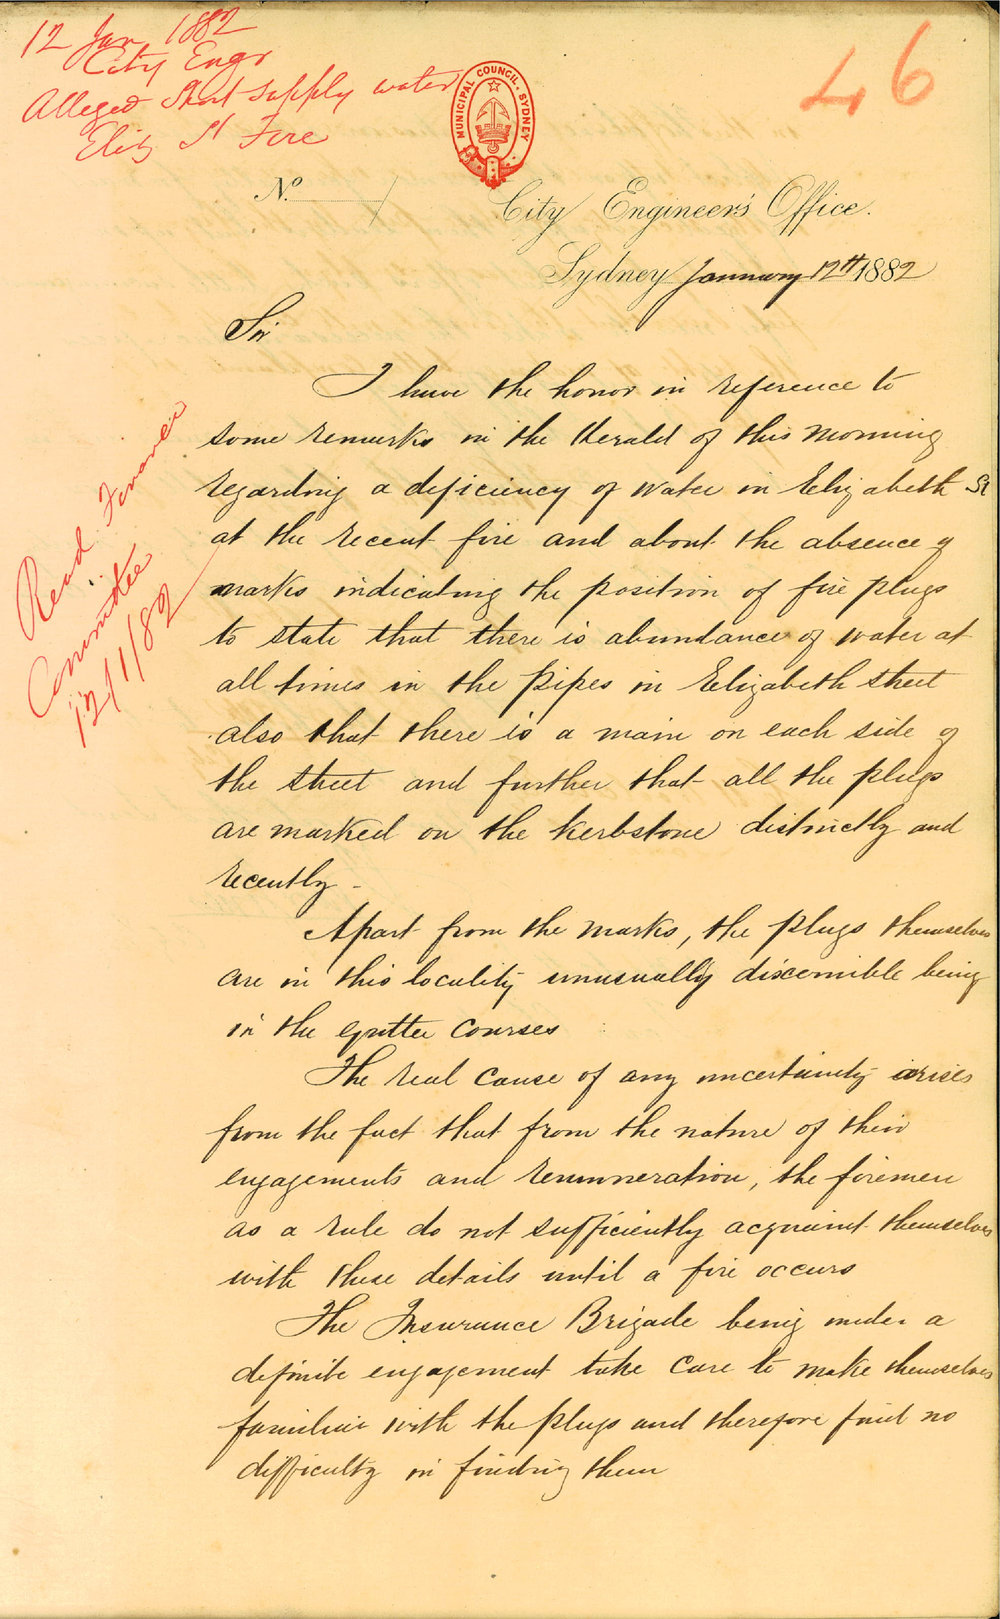 12 Jan 1882
City Engr
Alleged Short supply water
Eliz St Fire
46
MUNICIPAL COUNCIL. SYDNEY
No. /
City Engineer's Office.
Sydney January 12th 1882
Sir
I have the honor in reference to
some remarks in the Herald of this morning
regarding a deficiency of water in Elizabeth St
at the recent fire and about the absence of
marks indicating the position of fire plugs
to state that there is abundance of water at
all times in the pipes in Elizabeth street
also that there is a main on each side of
the street and further that all the plugs
are marked on the kerbstone distinctly and
recently -
Apart from the marks, the plugs themselves
are in this locality unusually discernible being
in the gutter courses
The real cause of any uncertainty arises
from the fact that from the nature of their
engagements and remuneration, the firemen
as a rule do not sufficiently acquaint themselves
with these details until a fire occurs
The Insurance Brigade being under a
definite engagement take care to make themselves
familiar with the plugs and therefore find no
difficulty in finding them
Read Finance
Committee
12/1/82